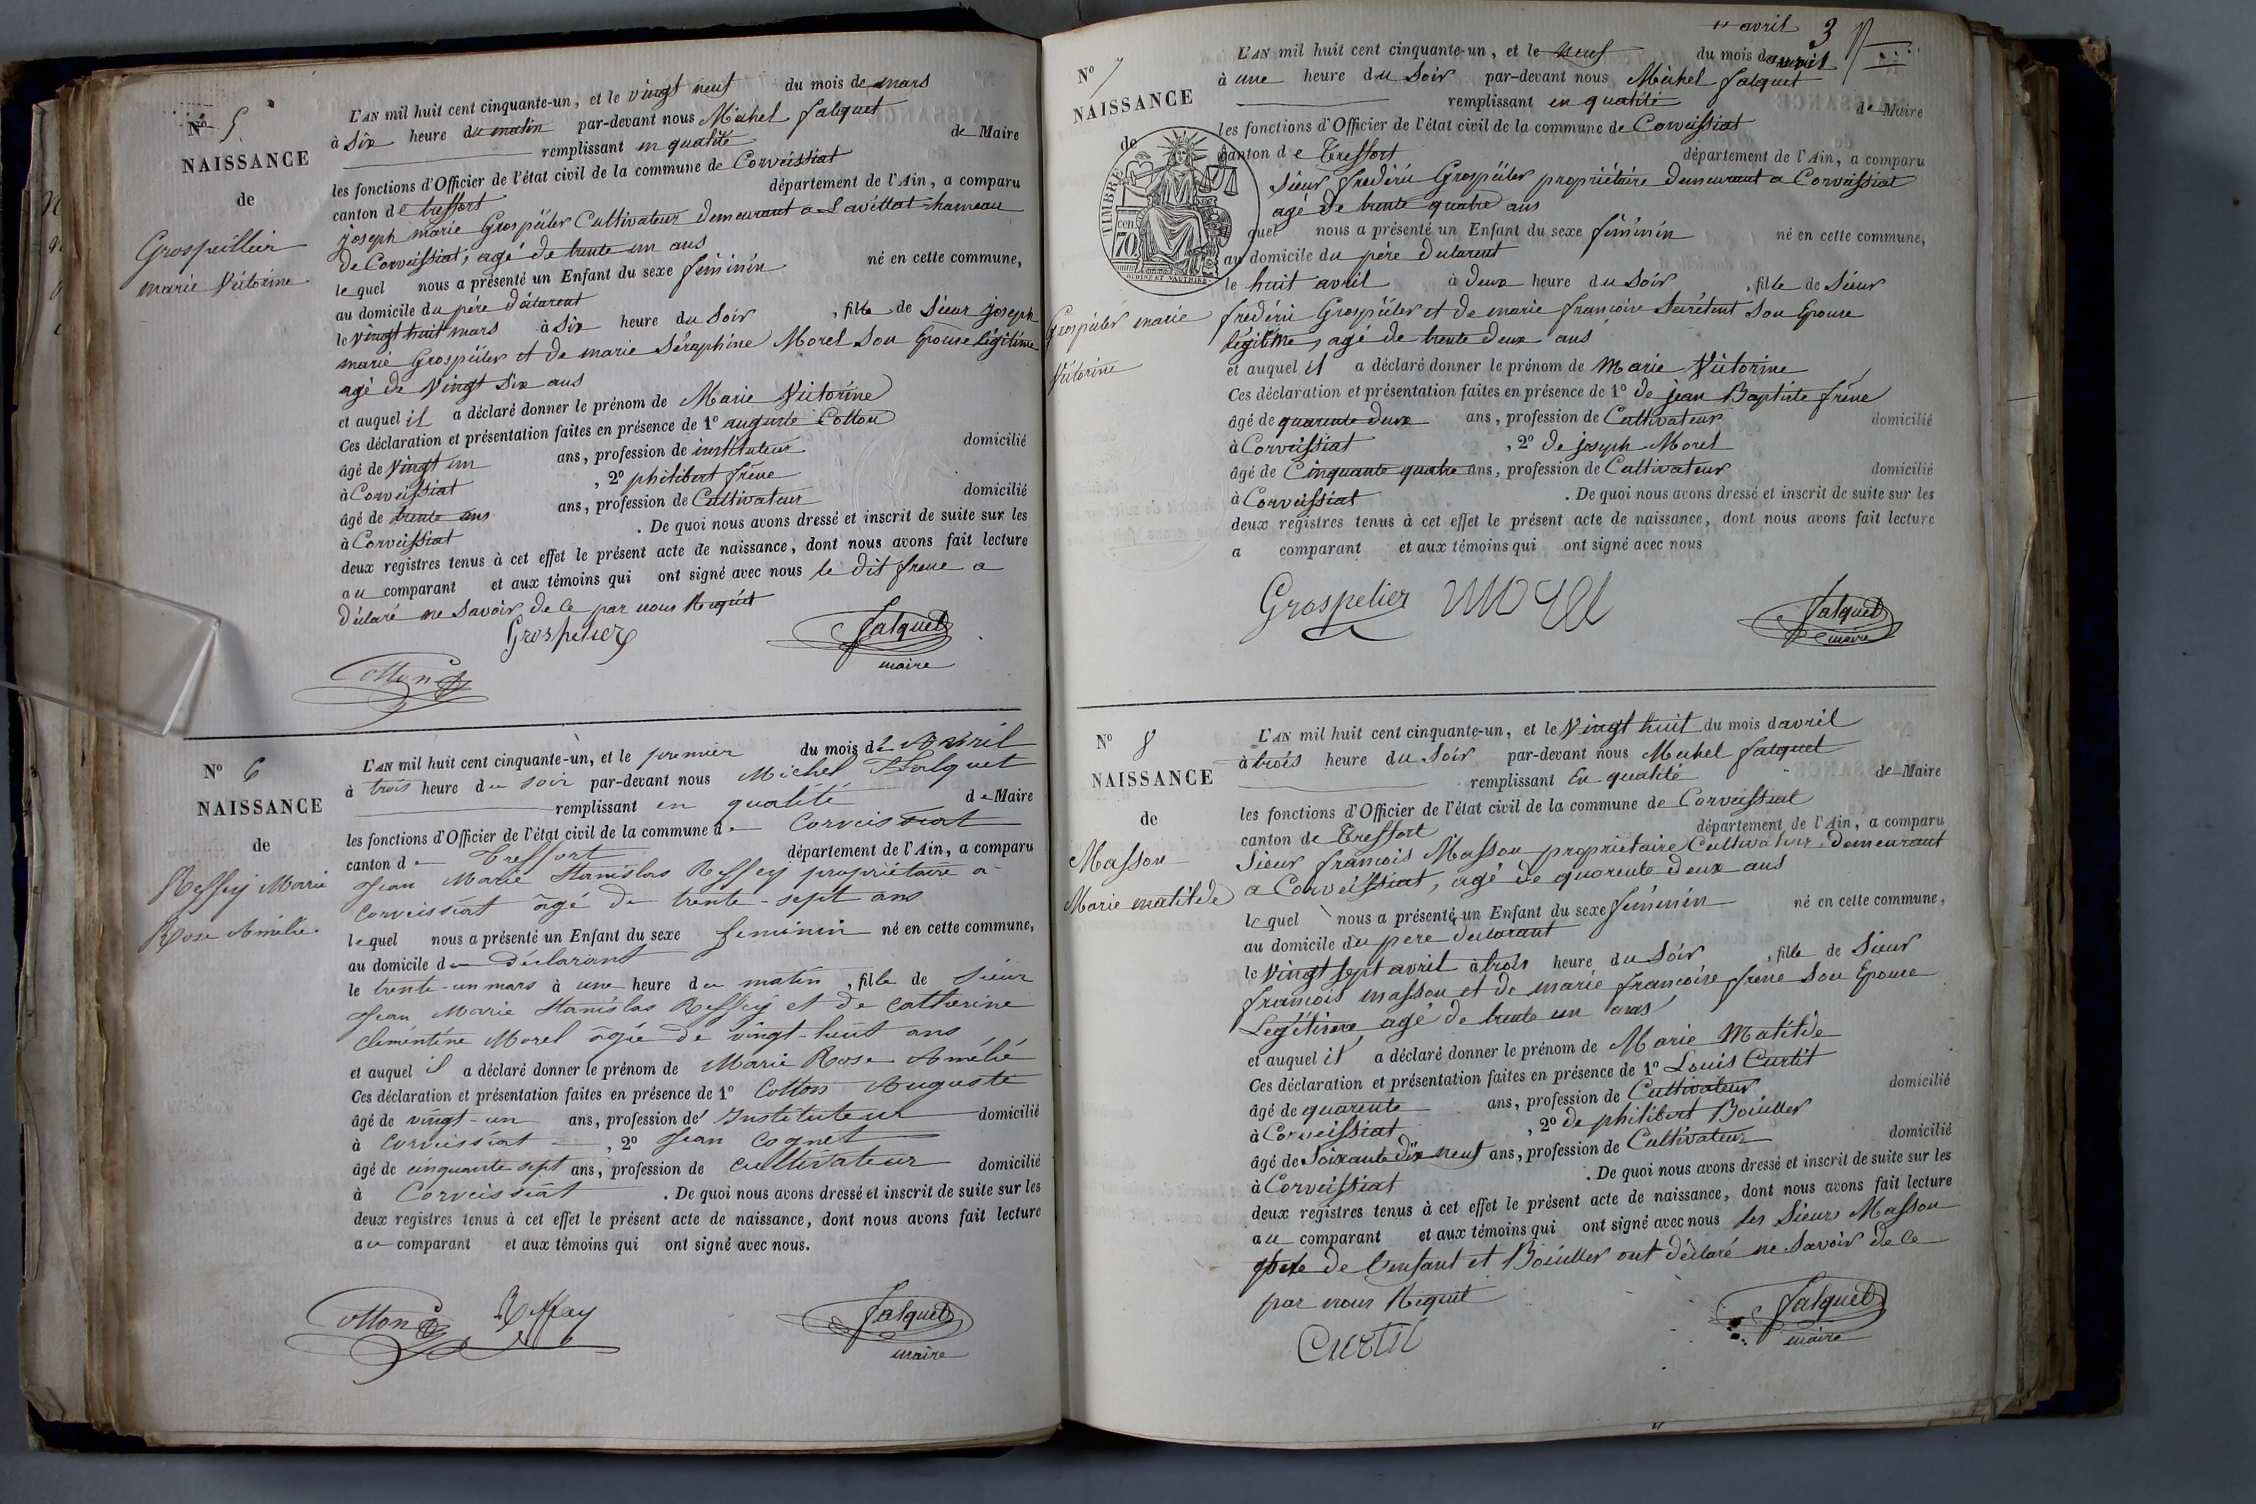 N° 5
NAISSANCE
de
Grospeillier
marie Victorine
L'AN mil huit cent cinquante-un, et le vingt neuf du mois de mars
à six heure du matin par-devant nous Michel falquet
remplissant en qualité de Maire
les fonctions d'Officier de l'état civil de la commune de Corveissiat
canton de treffort département de l'Ain, a comparu
joseph marie Grospéiller Cultivateur demeurant a Lavillat hameau
de Corveissiat, agé de trente un ans
le quel nous a présenté un Enfant du sexe féminin né en cette commune,
au domicile du père déclarent
le vingt huit mars à six heure du soir, fille de sieur joseph
marie Grospéiller et de marie séraphine Morel son Epouse légitime
agé de vingt six ans
et auquel il a déclaré donner le prénom de Marie Victorine
Ces déclaration et présentation faites en présence de 1° auguste Cotton
âgé de vingt un ans, profession de instituteur domicilié
à Corveissiat, 2° philibert frêne
âgé de trente ans ans, profession de Cultivateur domicilié
à Corveissiat. De quoi nous avons dressé et inscrit de suite sur les
deux registres tenus à cet effet le présent acte de naissance, dont nous avons fait lecture
au comparant et aux témoins qui ont signé avec nous le dit frene a
déclaré ne savoir de ce par nous Requit
Grospelier falquet
maire
Cotton
N° 6
NAISSANCE
de
Reffey Marie
Rose Amélie.
L'AN mil huit cent cinquante-un, et le premier du mois de Avril
à trois heure du soir par-devant nous Michel Falquet
remplissant en qualité de Maire
les fonctions d'Officier de l'état civil de la commune de Corveissiat
canton de Treffort département de l'Ain, a comparu
Jean Marie Stanislas Reffey propriétaire a
Corveissiat âgé de trente-sept ans
lequel nous a présenté un Enfant du sexe feminin né en cette commune,
au domicile du déclarant
le trente-un mars à une heure du matin, fille de sieur
Jean Marie Stanislas Reffey et de Catherine
Clémentine Morel âgée de vingt-huit ans
et auquel il a déclaré donner le prénom de Marie Rose Amélie
Ces déclaration et présentation faites en présence de 1° Cotton Auguste
âgé de vingt-un ans, profession de Instituteur domicilié
à Corveissiat, 2° Jean Cognet
âgé de cinquante sept ans, profession de cultivateur domicilié
à Corveissiat. De quoi nous avons dressé et inscrit de suite sur les
deux registres tenus à cet effet le présent acte de naissance, dont nous avons fait lecture
au comparant et aux témoins qui ont signé avec nous.
Cotton Reffay falquet
maire
avril 3
N° 7
NAISSANCE
de
TIMBRE
70
Grospéiler marie
Victorine
L'AN mil huit cent cinquante-un, et le neuf du mois d'avril
à une heure du soir par-devant nous Michel falquet
remplissant en qualité de Maire
les fonctions d'Officier de l'état civil de la commune de Corveissiat
canton de Treffort département de l'Ain, a comparu
sieur frederic Grospéiler propriétaire demeurant a Corveissiat
agé de trente quatre ans
quel nous a présenté un Enfant du sexe féminin né en cette commune,
au domicile du père déclarent
le huit avril à deux heure du soir, fille de sieur
fréderic Grospéiler et de marie francoise son Epouse
légitime, agé de trente deux ans
et auquel il a déclaré donner le prénom de Marie Victorine
Ces déclaration et présentation faites en présence de 1° de jean Baptiste frêne
âgé de quarente deux ans, profession de Cultivateur domicilié
à Corveissiat, 2° de joseph Morel
âgé de Cinquante quatre ans, profession de Cultivateur domicilié
à Corveissiat. De quoi nous avons dressé et inscrit de suite sur les
deux registres tenus à cet effet le présent acte de naissance, dont nous avons fait lecture
a comparant et aux témoins qui ont signé avec nous
Grospelier Morel falquet
maire
N° 8
NAISSANCE
de
Masson
Marie matilde
L'AN mil huit cent cinquante-un, et le vingt huit du mois d'avril
à trois heure du soir par-devant nous Michel falquet
remplissant En qualité de Maire
les fonctions d'Officier de l'état civil de la commune de Corveissiat
canton de Treffort département de l'Ain, a comparu
Sieur francois Masson propriétaire Cultivateur demeurant
a Corveissiat, agé de quarente deux ans
le quel nous a présenté un Enfant du sexe féminin né en cette commune,
au domicile du pere declarant
le vingt sept avril à trois heure du soir, fille de Sieur
francois masson et de marie francoise frene son Epouse
Legétime, agé de trente un ans
et auquel il a déclaré donner le prénom de Marie Matilde
Ces déclaration et présentation faites en présence de 1° Louis Curtil
âgé de quarente ans, profession de Cultivateur domicilié
à Corveissiat, 2° de philibert Boiuller
âgé de soixante dix neuf ans, profession de Cultivateur domicilié
à Corveissiat. De quoi nous avons dressé et inscrit de suite sur les
deux registres tenus à cet effet le présent acte de naissance, dont nous avons fait lecture
au comparant et aux témoins qui ont signé avec nous les sieurs Masson
père de l'enfant et Boiuller ont déclaré ne savoir de ce
par nous Requit
Curtil falquet
maire